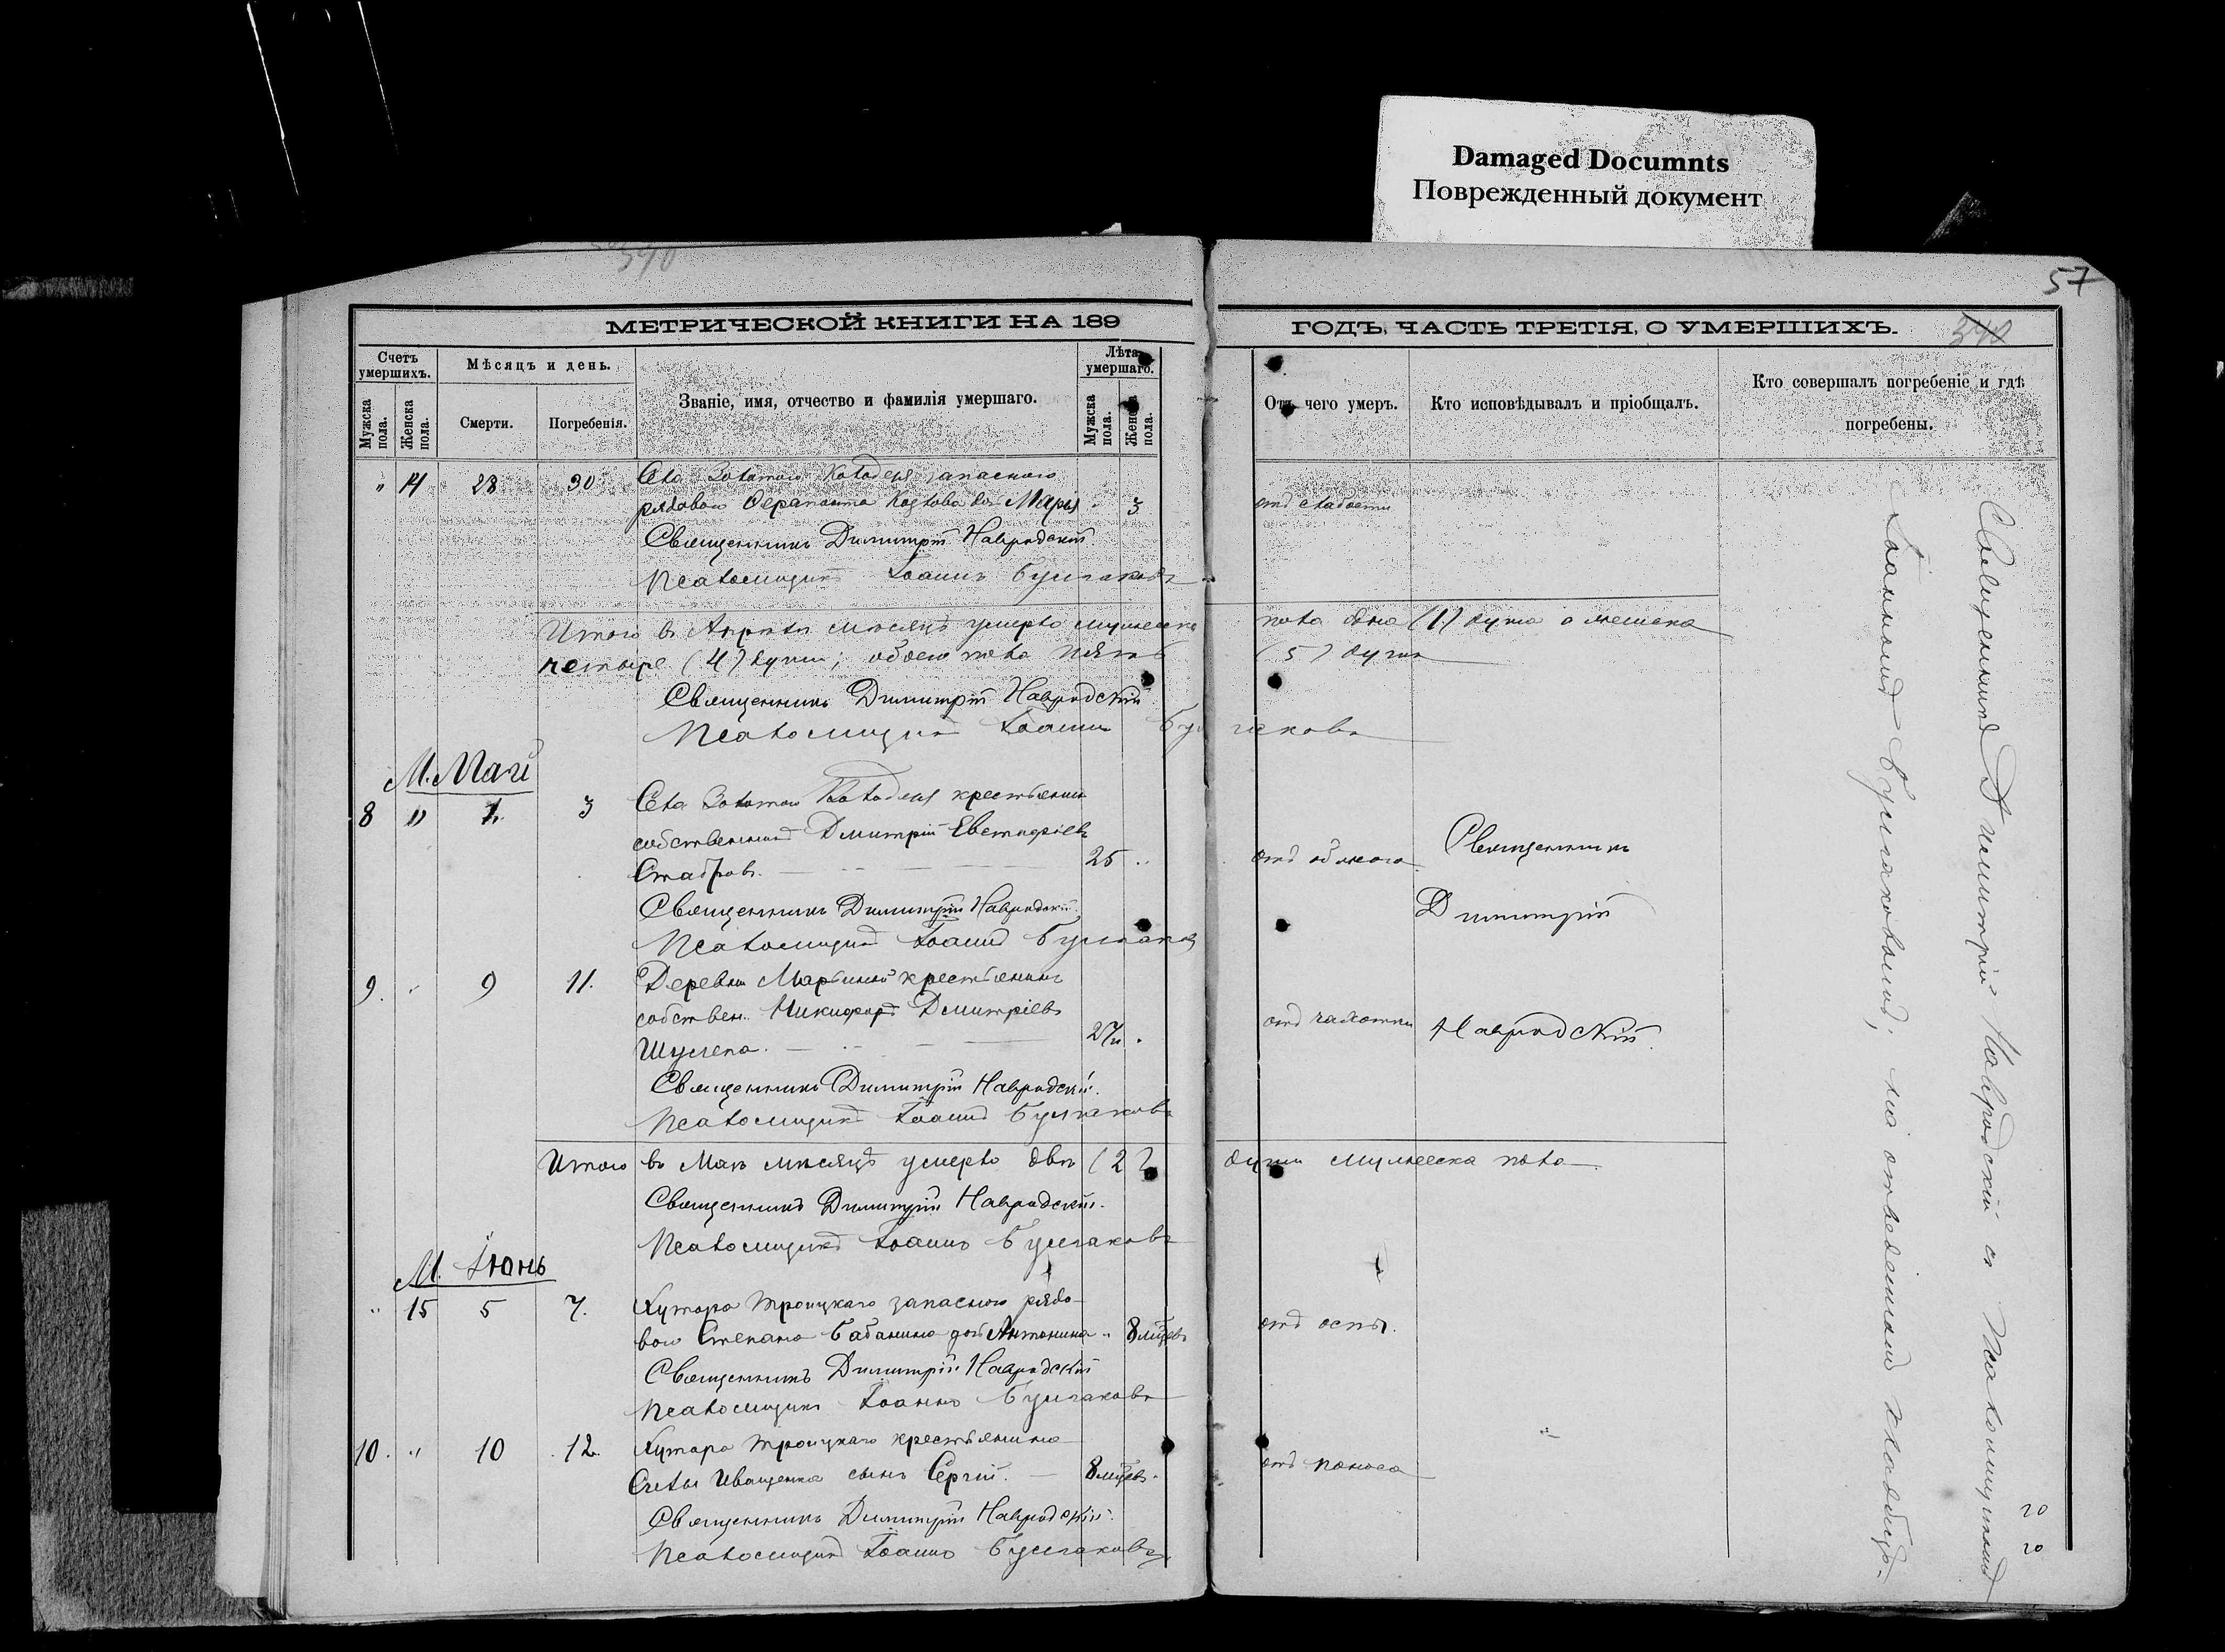 Damaged Documnts
Поврежденный документ
57
340
340
МЕТРИЧЕСКОЙ КНИГИ НА 189
ГОДЪ, ЧАСТЬ ТРЕТІЯ, О УМЕРШИХЪ.
Счетъ умершихъ.
Мужска пола.
Женска пола.
Мѣсяцъ и день.
Смерти.
Погребенія.
Званіе, имя, отчество и фамилія умершаго.
Лѣта умершаго.
Мужска пола.
Женска пола.
Отъ чего умеръ.
Кто исповѣдывалъ и пріобщалъ.
Кто совершалъ погребеніе и гдѣ погребены.
" 14 28 30 Села Золотого Колодезя запасного
рядового Козлова дочь Марія " 3 отъ слабости
Священникъ Димитрій Навродскій
Псаломщикъ Іоаннъ Булгаковъ
Итого въ Апрѣлѣ мѣсяцѣ умерло мужеска пола одна (1) душа а женска
четыре (4) души; обоего пола пять (5) душъ
Священникъ Димитрій Навродскій
Псаломщикъ Іоаннъ Булгаковъ
М. Май
8 " 1 3 Села Золотого Колодезя крестьянинъ
собственникъ Димитрій Евстафіевъ
25 " отъ
Священникъ Димитрій Навродскій
Псаломщикъ Іоаннъ Булгаковъ
9. " 9 11. Деревни Марьиной крестьянинъ
собствен. Никифоръ Димитріевъ
27 " отъ чахотки
Священникъ Димитрій Навродскій.
Псаломщикъ Іоаннъ Булгаковъ
Священникъ
Димитрій
Навродскій.
Итого въ Маѣ мѣсяцѣ умерло двѣ (2) души мужеска пола
Священникъ Димитрій Навродскій.
Псаломщикъ Іоаннъ Булгаковъ
М. Іюнь
" 15 5 7. Хутора Троицкаго запасного рядо-
вого Степана Бабанина дочь Антонина " 8 мѣсяц. отъ оспы.
Священникъ Димитрій Навродскій
Псаломщикъ Іоаннъ Булгаковъ
10. " 10 12. Хутора Троицкаго крестьянина
Иващенка сынъ Сергій. 8 мѣсяц. отъ поноса
Священникъ Димитрій Навродскій.
Псаломщикъ Іоаннъ Булгаковъ
Священникъ Димитрій Навродскій съ Псаломщикомъ
Іоанномъ Булгаковымъ, на отведенномъ кладбищѣ.
20
20